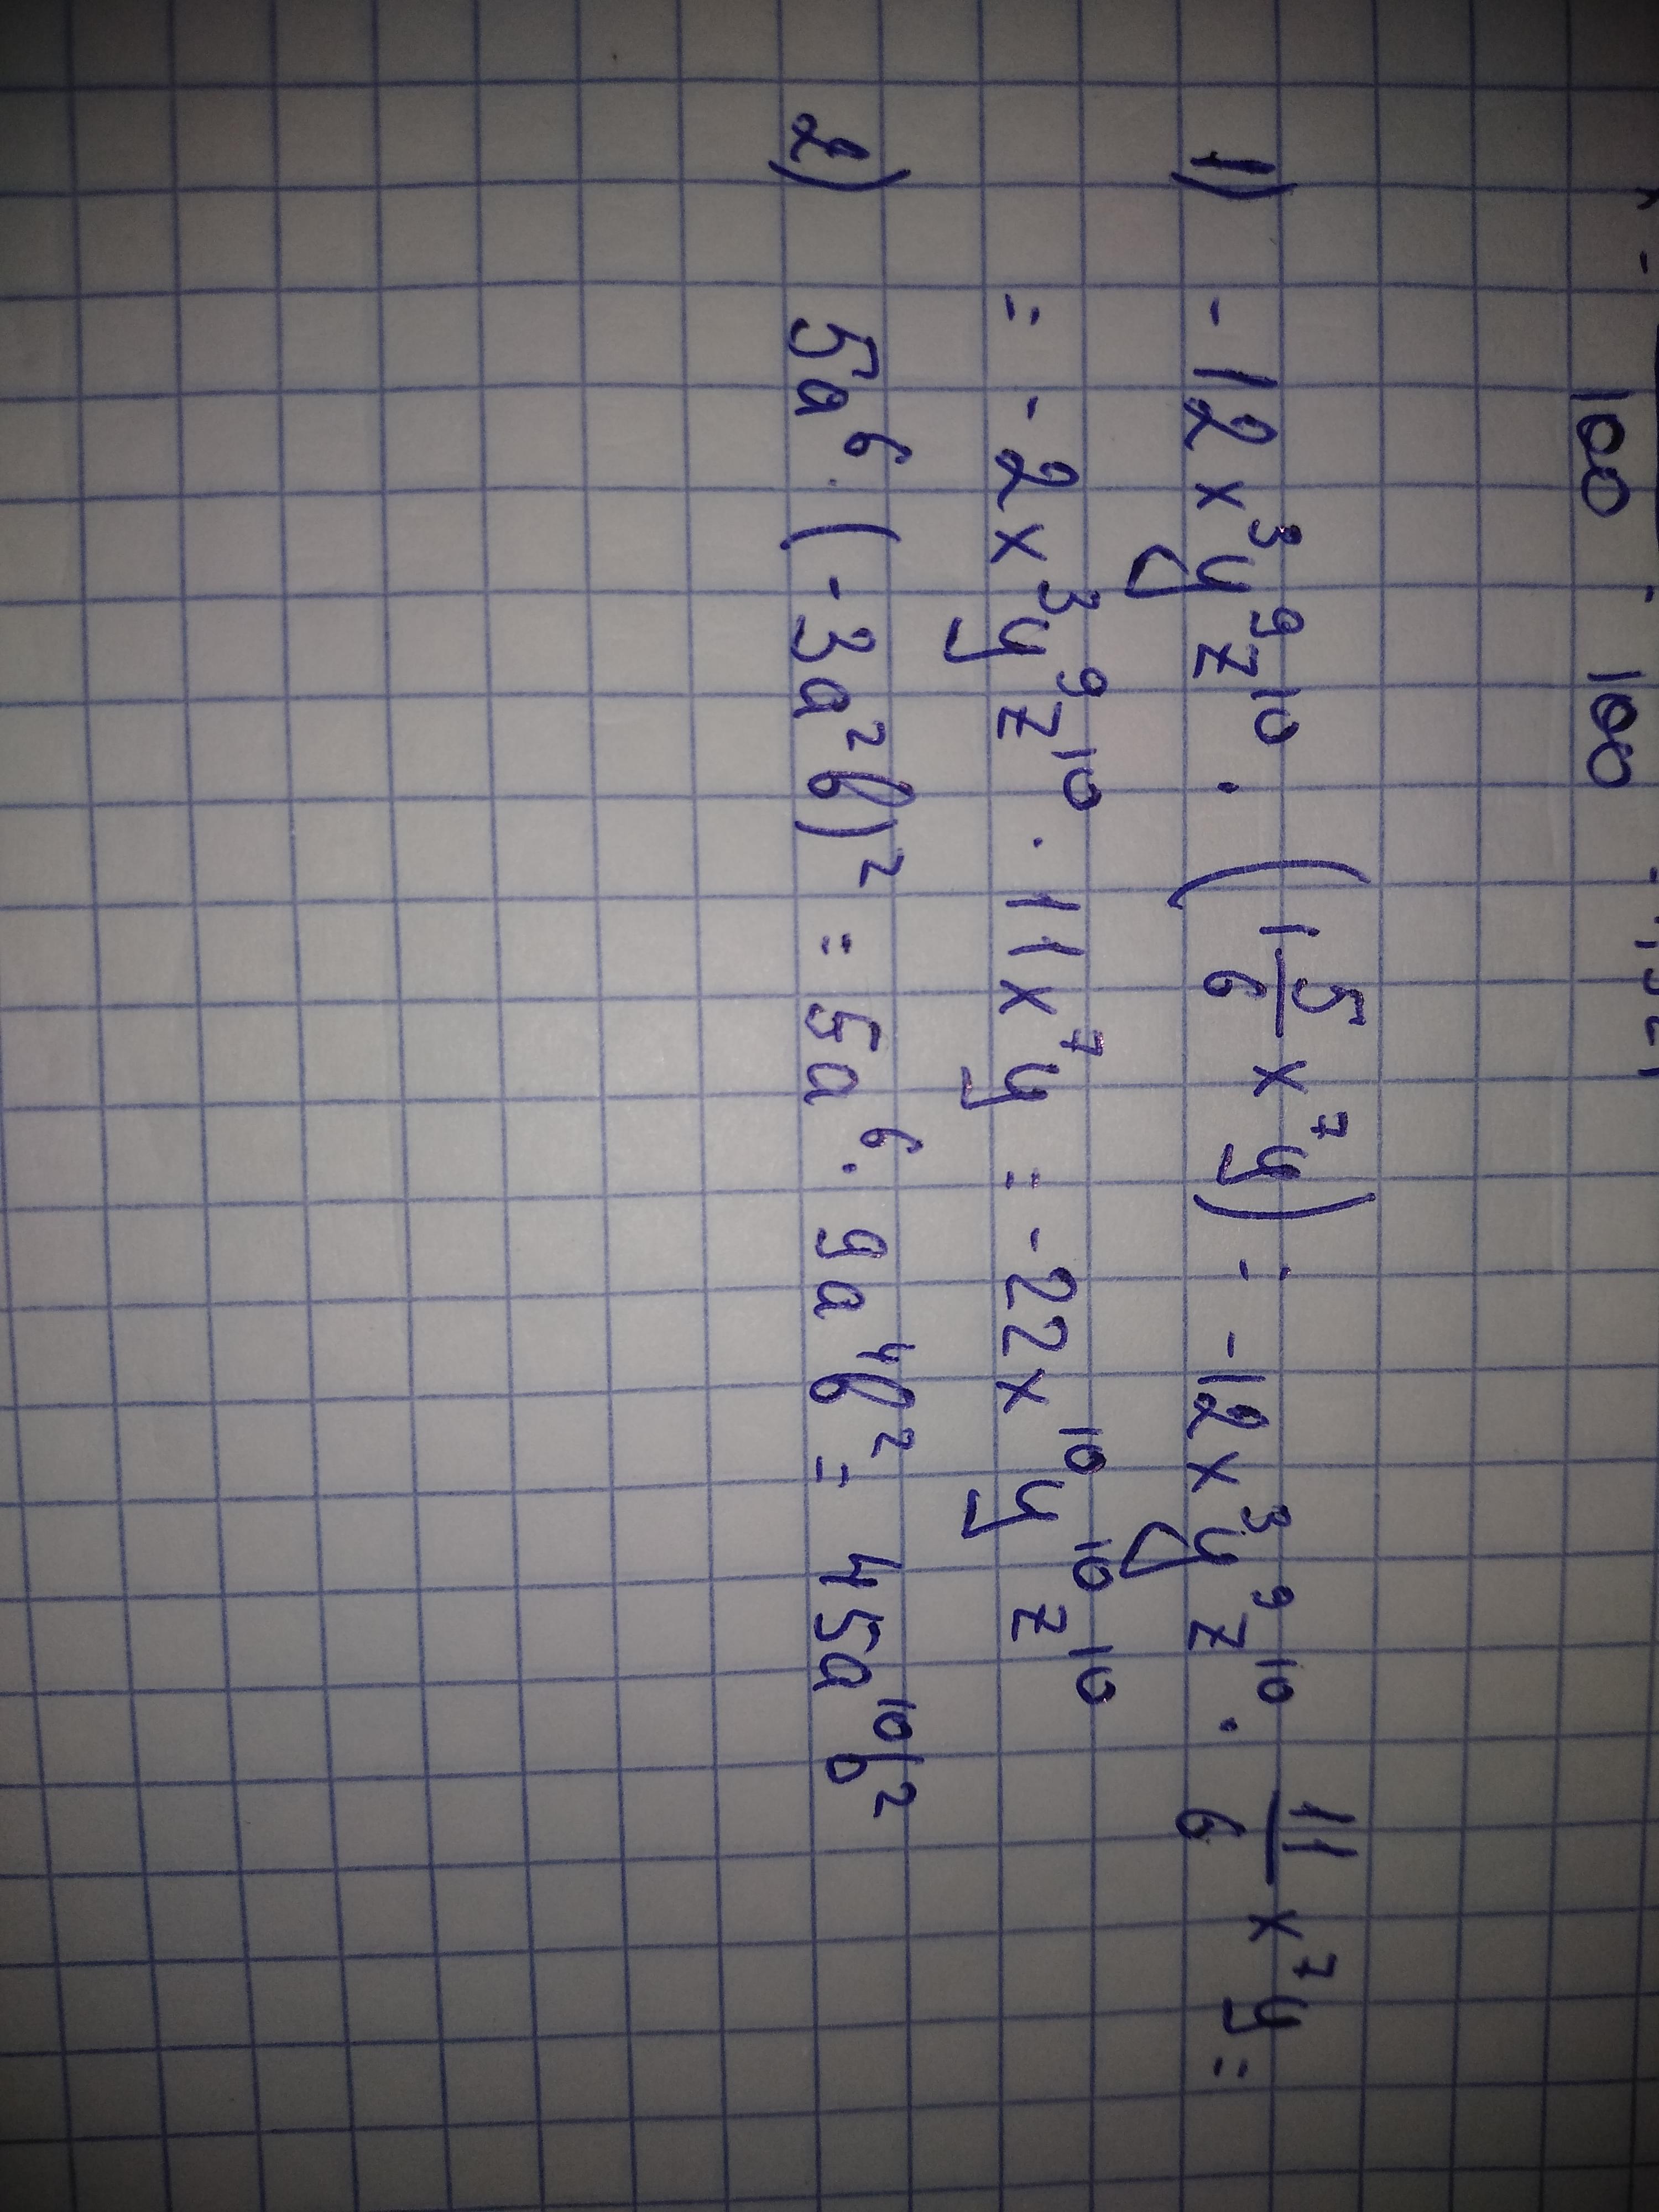 100 100
1) -12x³y⁹z¹⁰ · (1 5/6 x⁷y) = -12x³y⁹z¹⁰ · 11/6 x⁷y =
= -2x³y⁹z¹⁰ · 11x⁷y = -22x¹⁰y¹⁰z¹⁰
2) 5a⁶ · (-3a²b)² = 5a⁶ · 9a⁴b² = 45a¹⁰b²